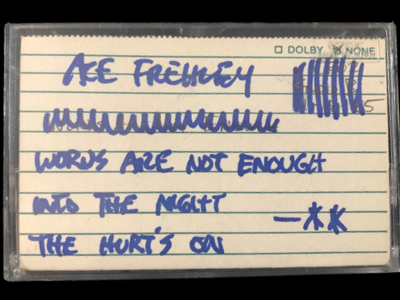 DOLBY NONE
ACE FREHLEY
WORDS ARE NOT ENOUGH
INTO THE NIGHT
THE HURT'S ON
—**